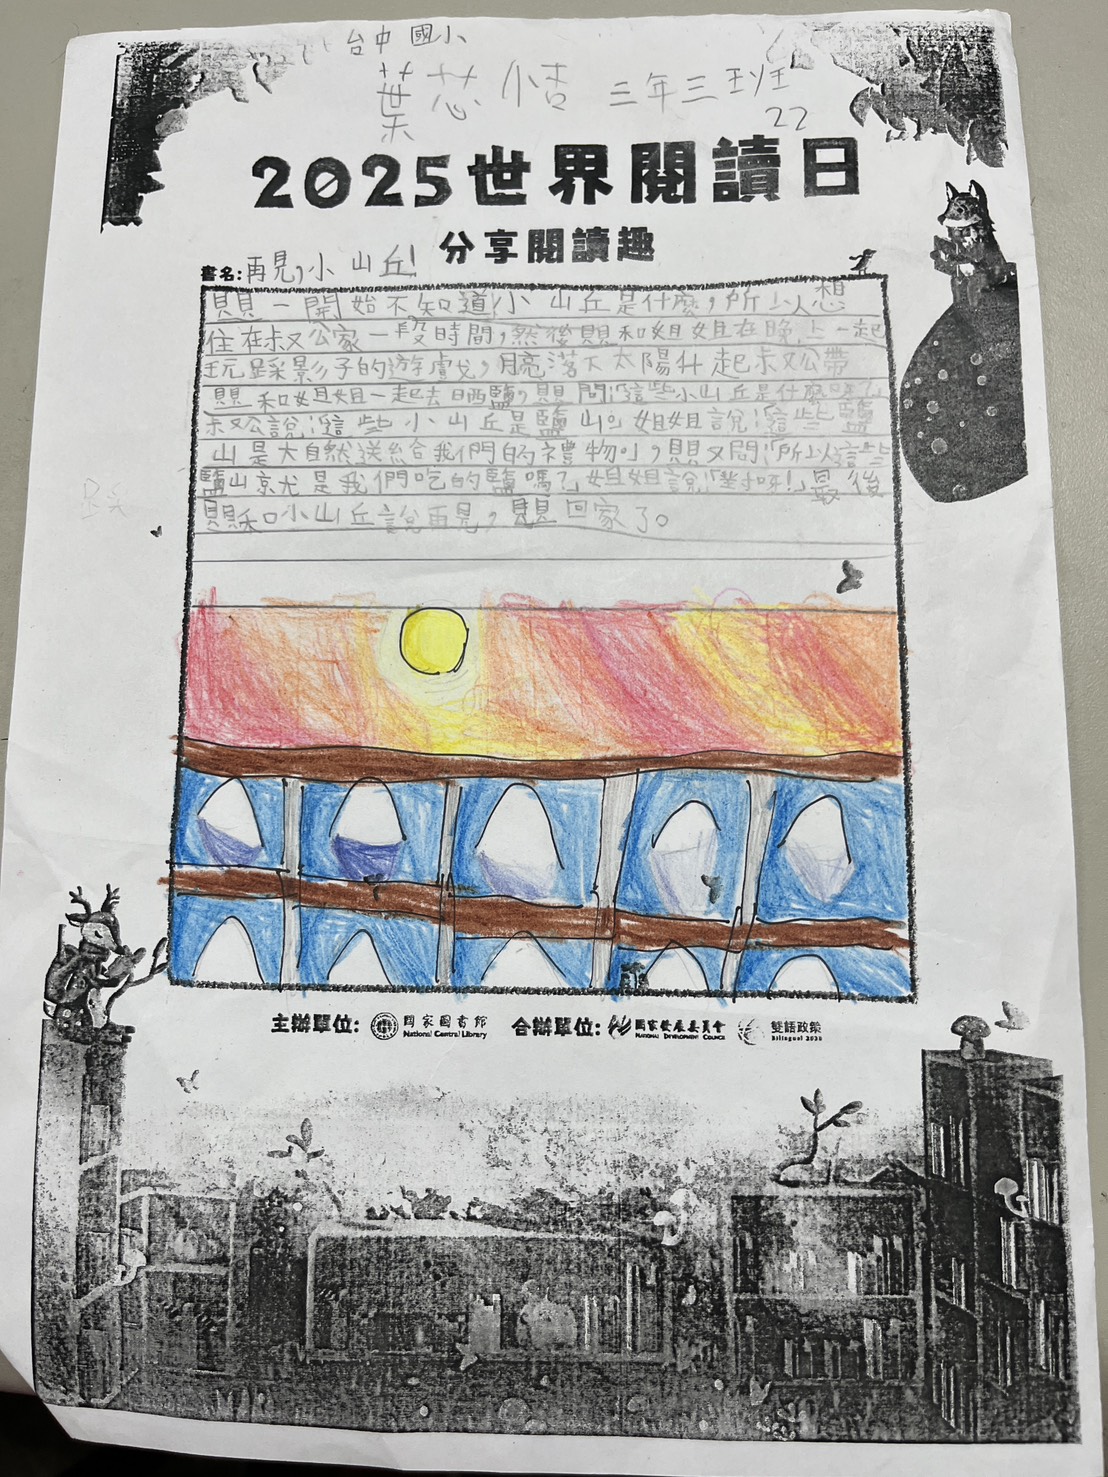 台中國小
葉芯恬 三年三班
22
2025世界閱讀日
分享閱讀趣
書名:再見,小山丘!
貝貝一開始不知道小山丘是什麼,所以想
住在叔公家一段時間,然後貝貝和姐姐在晚上一起
玩踩影子的遊戲,月亮落下太陽升起叔公帶
貝貝和姐姐一起去晒鹽,貝貝問:這些小山丘是什麼呀?
叔公說:這些小山丘是鹽山。姐姐說:這些鹽
山是大自然送給我們的禮物。貝貝又問:所以這些
鹽山就是我們吃的鹽嗎?姐姐說:「對呀!」最後
貝貝和小山丘說再見,貝貝回家了。
主辦單位: 國家圖書館 合辦單位: 國家發展委員會 雙語政策
National Central Library NATIONAL DEVELOPMENT COUNCIL Bilingual 2030